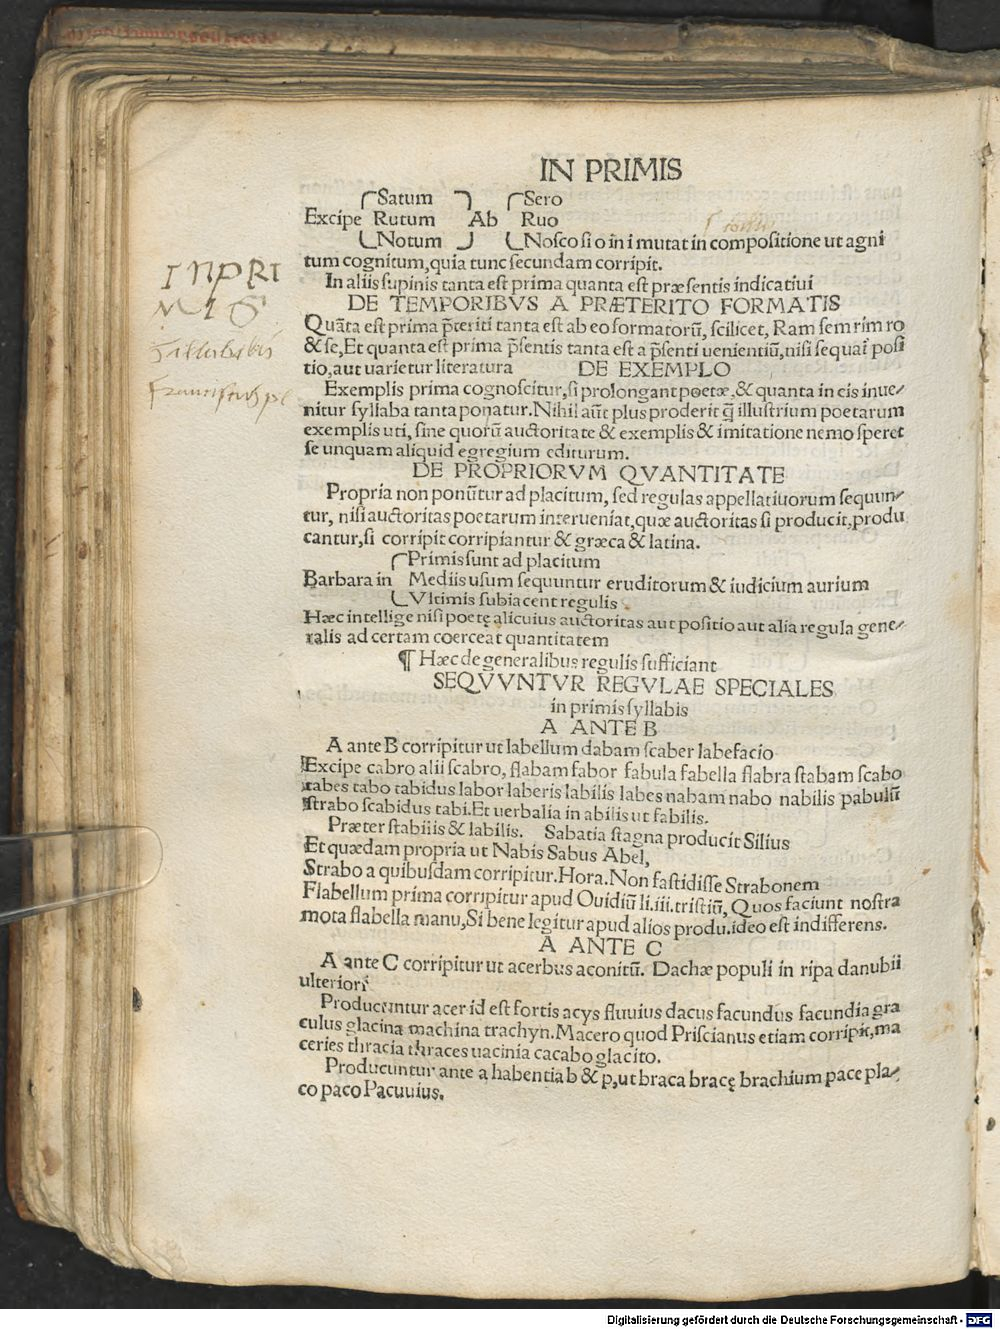 IN PRIMIS
Satum Sero
Excipe Rutum Ab Ruo
Notum Nosco si o in i mutat in compositione ut agni
tum cognitum, quia tunc secundam corripit.
In aliis supinis tanta est prima quanta est præsentis indicatiui
DE TEMPORIBVS A PRÆTERITO FORMATIS
Quāta est prima p̄teriti tanta est ab eo formatorū, scilicet, Ram sem rim ro
& se, Et quanta est prima p̄sentis tanta est a p̄senti uenientiū, nisi sequat̄ posi
tio, aut uarietur literatura DE EXEMPLO
Exemplis prima cognoscitur, si prolongant poetæ, & quanta in eis inue-
nitur syllaba tanta ponatur. Nihil aūt plus proderit q̄ illustrium poetarum
exemplis uti, sine quorū auctoritate & exemplis & imitatione nemo speret
se unquam aliquid egregium editurum.
DE PROPRIORVM QVANTITATE
Propria non ponūtur ad placitum, sed regulas appellatiuorum sequun-
tur, nisi auctoritas poetarum interueniat, quæ auctoritas si producit, produ
cantur, si corripit corripiantur & græca & latina.
Primis sunt ad placitum
Barbara in Mediis usum sequuntur eruditorum & iudicium aurium
Vltimis subiacent regulis.
Hæc intellige nisi poetę alicuius auctoritas aut positio aut alia regula gene-
ralis ad certam coerceat quantitatem
¶ Hæc de generalibus regulis sufficiant
SEQVVNTVR REGVLAE SPECIALES
in primis syllabis
A ANTE B
A ante B corripitur ut labellum dabam scaber labefacio
Excipe cabro alii scabro, flabam fabor fabula fabella flabra stabam scabo
tabes tabo tabidus labor laberis labilis labes nabam nabo nabilis pabulū
strabo scabidus tabi. Et uerbalia in abilis ut fabilis.
Præter stabilis & labilis. Sabatia stagna producit Silius
Et quædam propria ut Nabis Sabus Abel,
Strabo a quibusdam corripitur. Hora. Non fastidisse Strabonem
Flabellum prima corripitur apud Ouidiū li. iii. tristiū, Quos faciunt nostra
mota flabella manu, Si bene legitur apud alios produ. ideo est indifferens.
A ANTE C
A ante C corripitur ut acerbus aconitū. Dachæ populi in ripa danubii
ulteriori
Producuntur acer id est fortis acys fluuius dacus facundus facundia gra
culus glacina machina trachyn. Macero quod Priscianus etiam corripit, ma
ceries thracia thraces uacinia cacabo glacito.
Producuntur ante a habentia b & p, ut braca bracę brachium pace pla-
co paco Pacuuius.
INPRI
MIS
sillabis
Digitalisierung gefördert durch die Deutsche Forschungsgemeinschaft - DFG